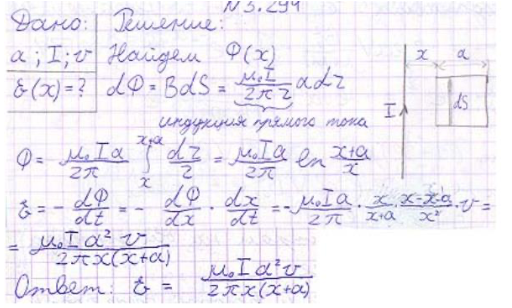 №3.294
Дано: Решение:
a; I; v Найдем Φ(x)
ℰ(x)=? dΦ = BdS = μ₀I/2πr adr
индукция прямого тока
x a
I dS
Φ = μ₀Ia/2π ∫ₓˣ⁺ᵃ dr/r = μ₀Ia/2π ln x+a/x
ℰ = - dΦ/dt = - dΦ/dx · dx/dt = - μ₀Ia/2π · x/x+a · x-x-a/x² · v =
= μ₀Ia²v/2πx(x+a)
Ответ: ℰ = μ₀Ia²v/2πx(x+a)